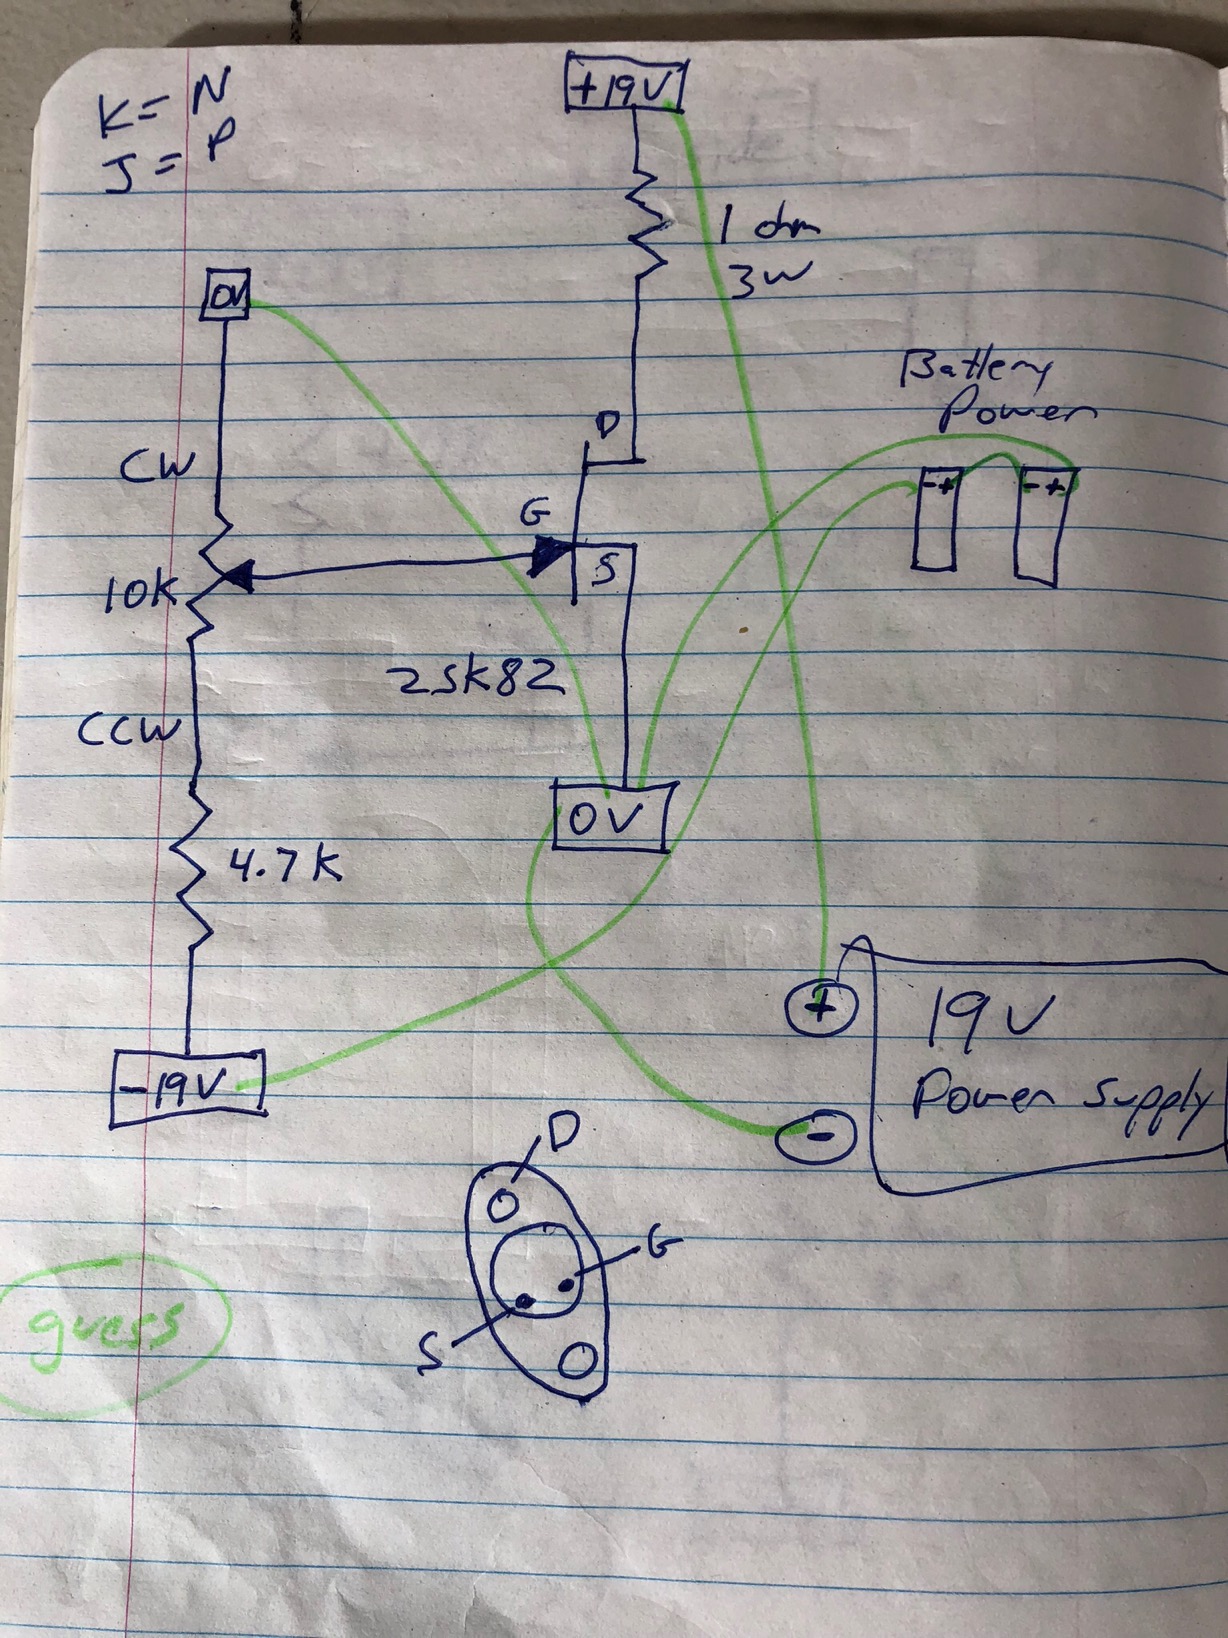 K= N
J= P
+19V
1 ohm
3W
0V
Battery
Power
CW
D
G
S
10K
- +
- +
2SK82
CCW
0V
4.7K
+
19V
Power Supply
-
-19V
D
G
S
guess